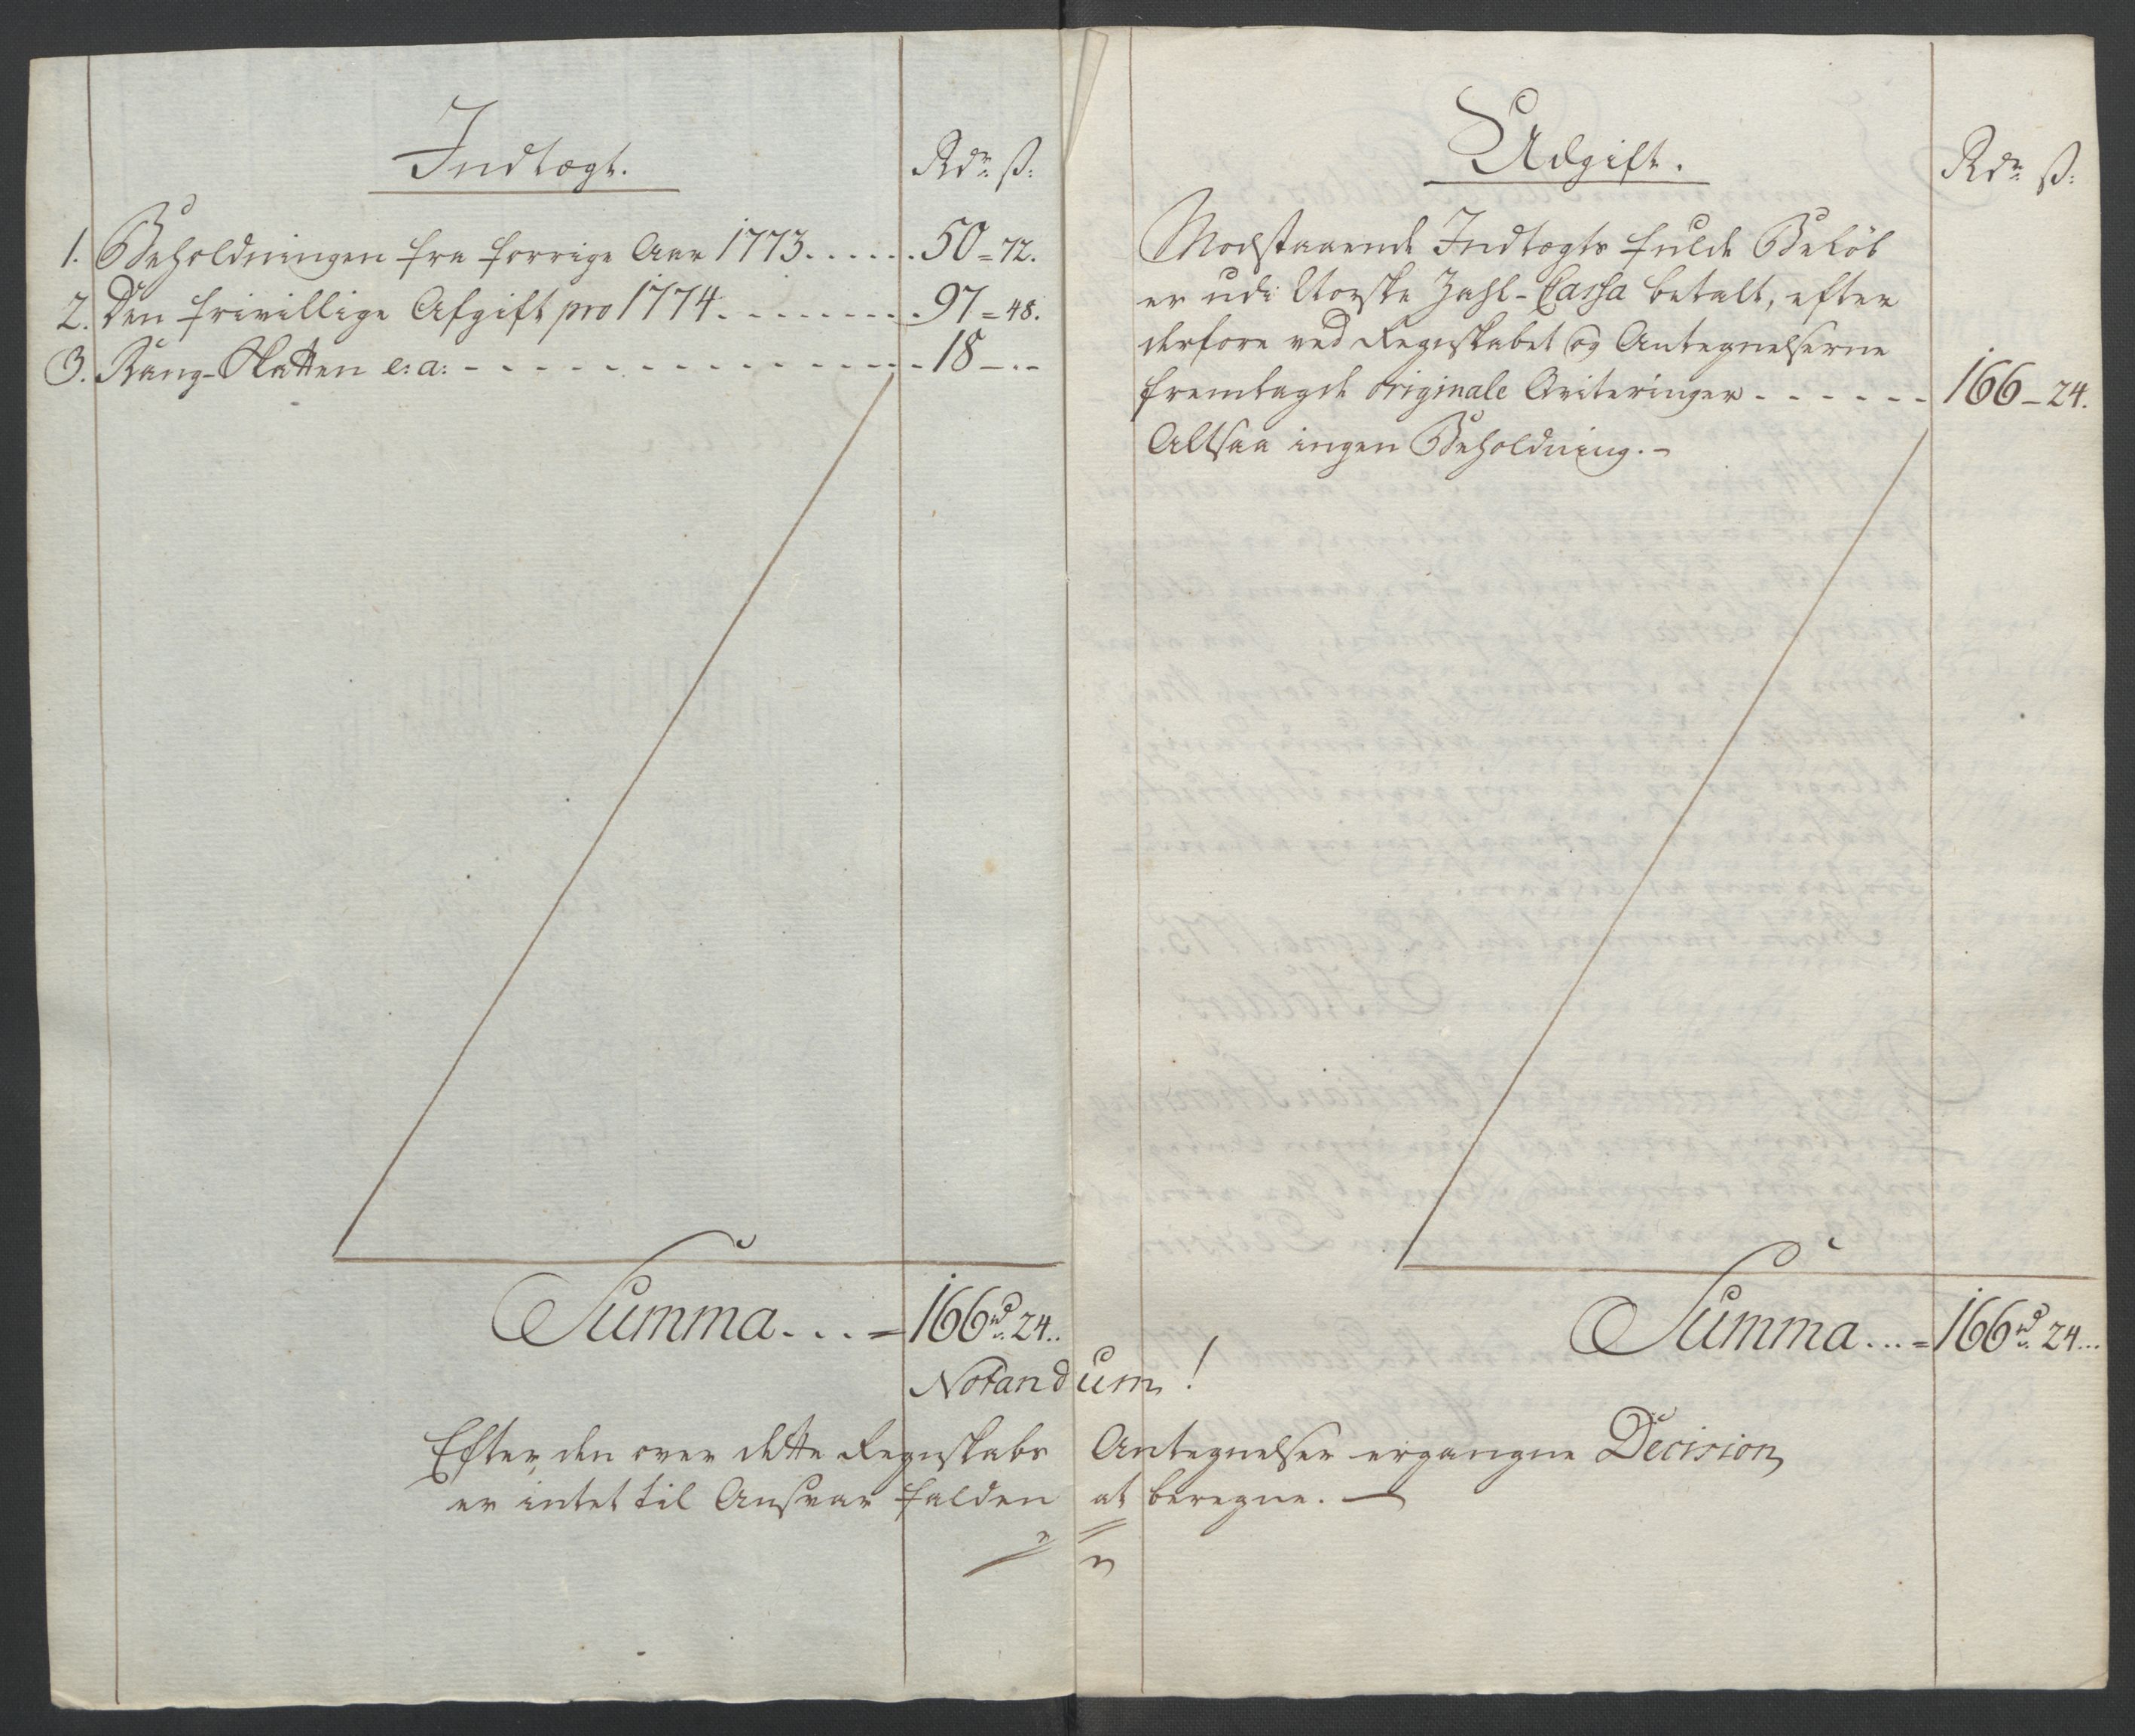 Indtægt.
Rdr ß:
1. Beholdningen fra forrige Aar 1773. . . . . . 50 = 72.
2. Den frivillige Afgift pro 1774. . . . . . . . . 97 = 48.
3. Rang-Skatten e: a: - - - - - - - - - - - - - 18 - . -
Summa. . . = 166rd 24..
Udgift.
Rdr ß:
Modstaaende Indtægts fulde Beløb
er udi Norske Zahl-Cassa betalt, efter
derfore ved Regnskabet og Antegnelserne
fremlagde originale Qviteringer - - - - - - 166 - 24.
Altsaa ingen Beholdning. -
Summa... = 166rd 24...
Notandum!
Efter den over dette Regnskabs Antegnelser ergangne Decision,
er intet til Ansvar falden at beregne. —